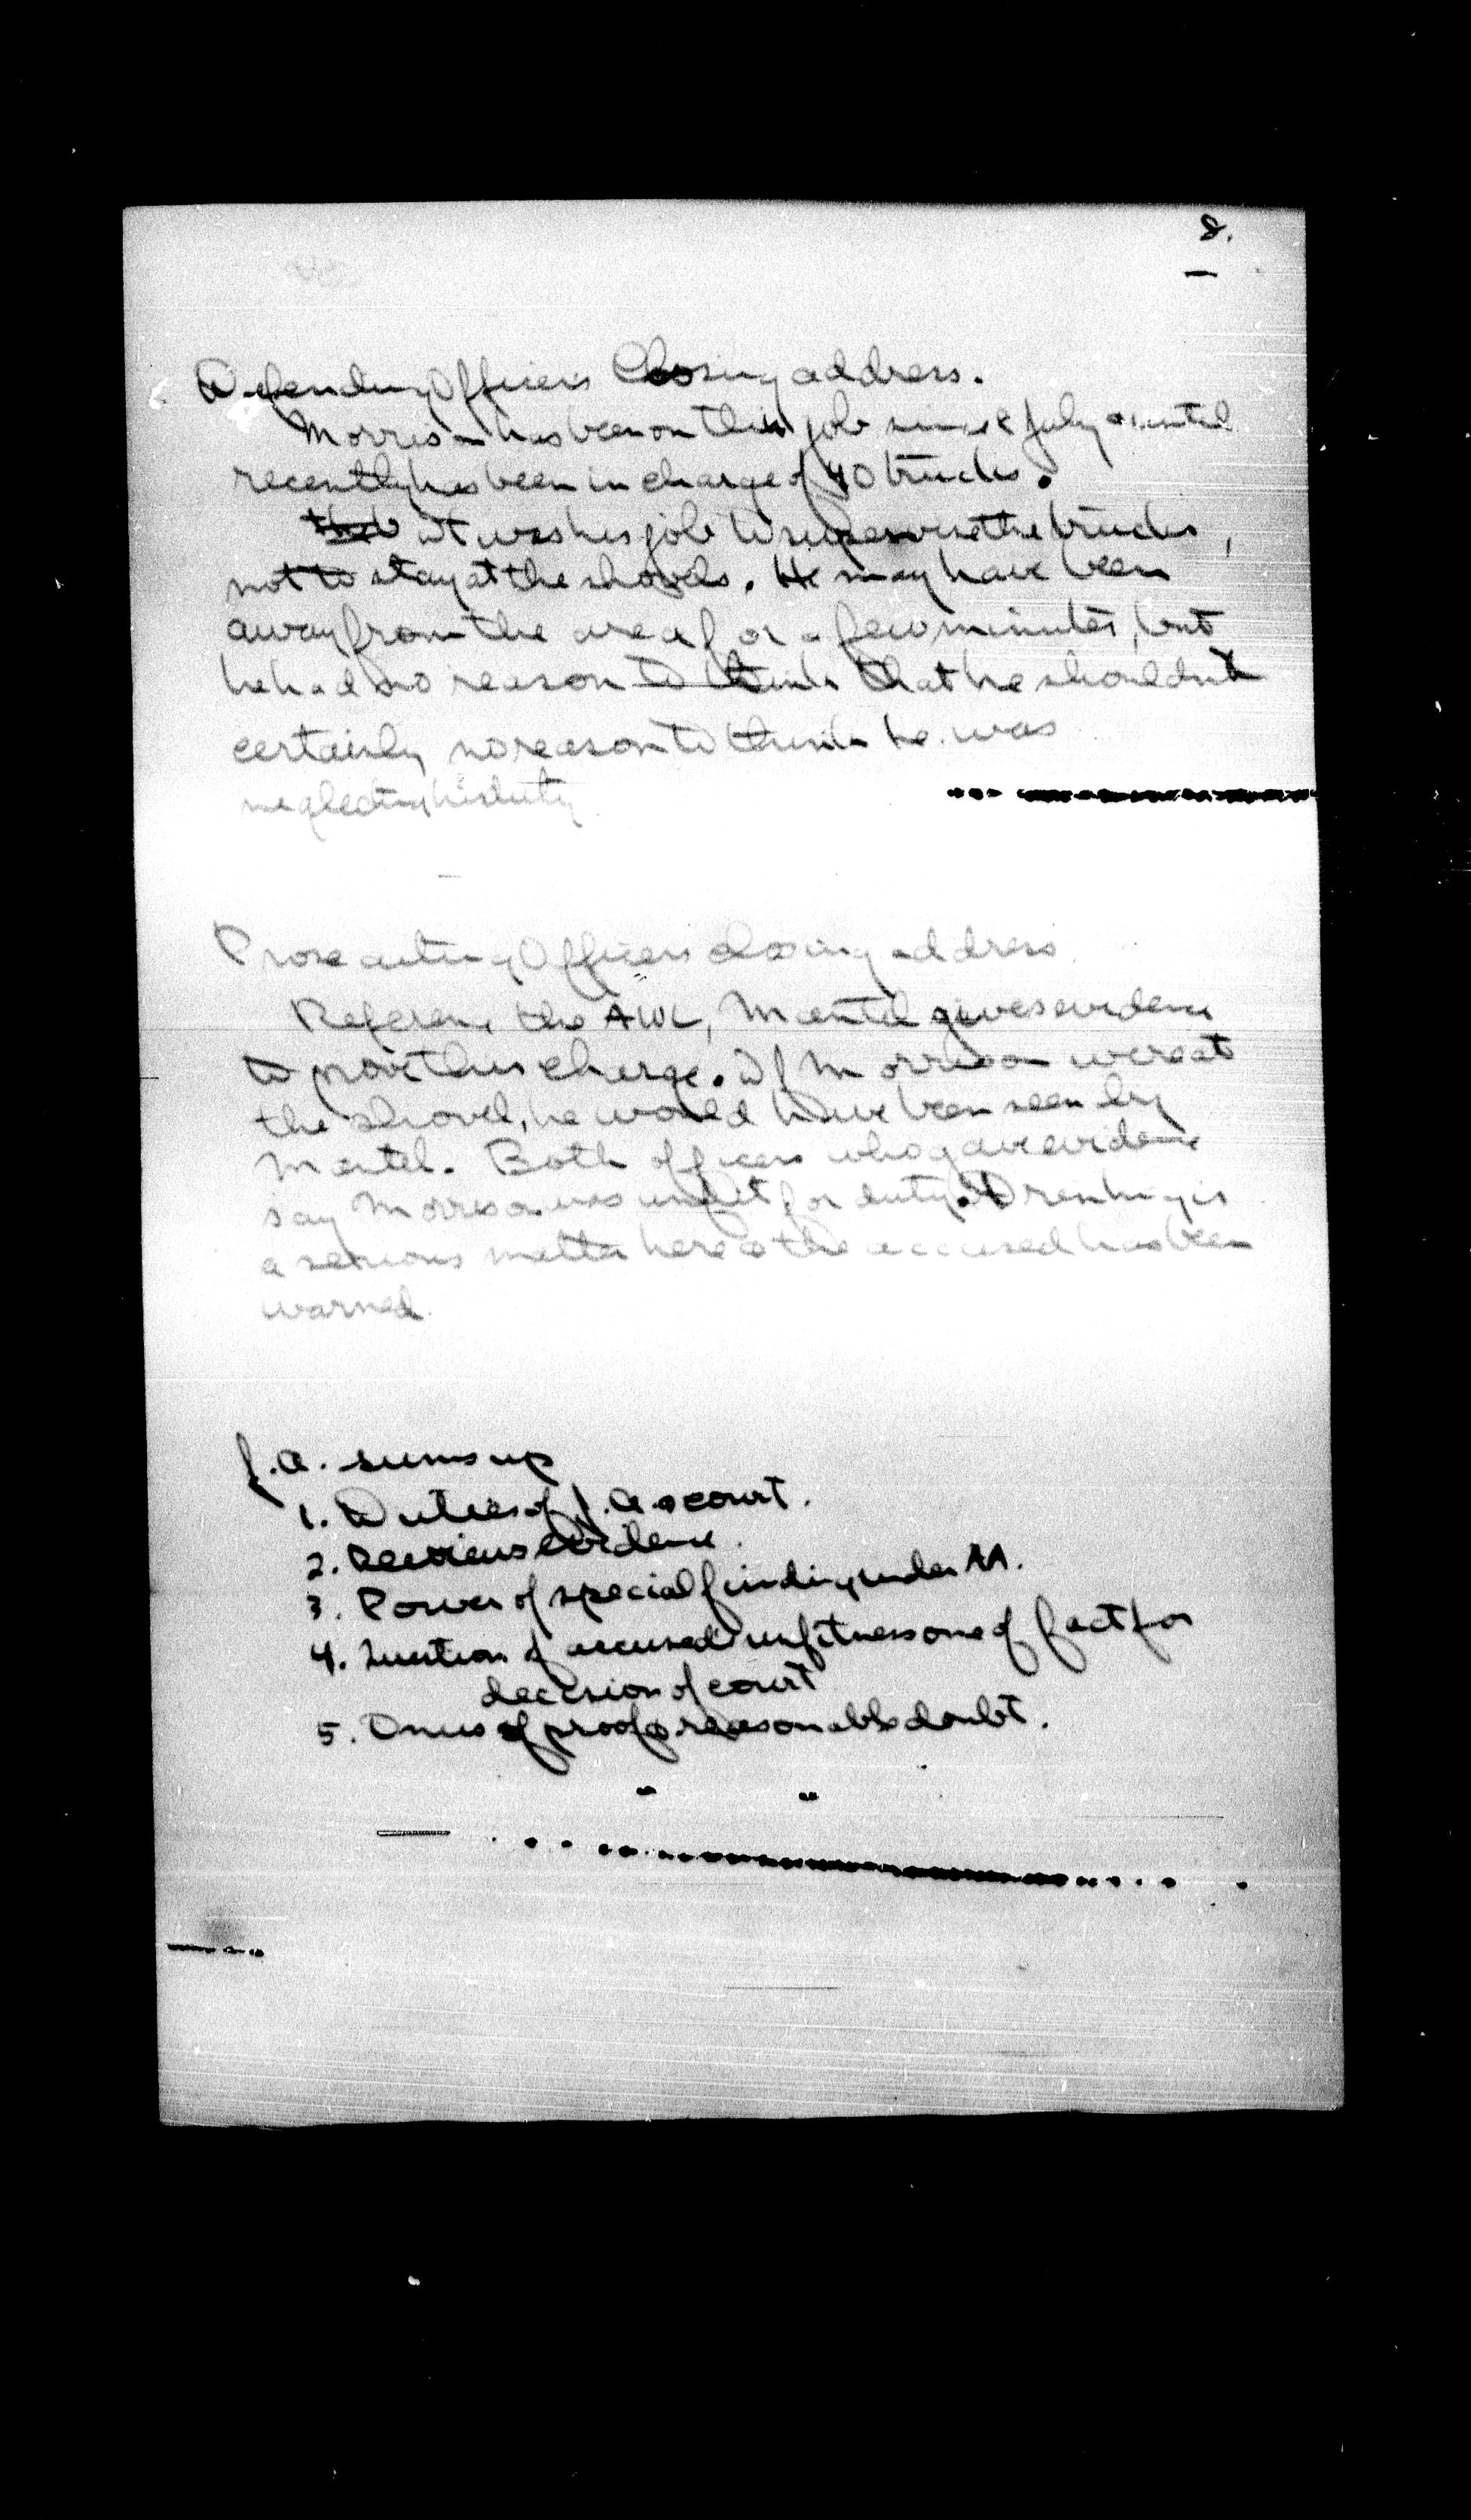 8.
Defending Officers Closing address.
Morrison has been on this job since July & until
recently has been in charge of 40 trucks.
It was his job to supervise the trucks,
not to stay at the shovels. He may have been
away from the area for a few minutes, but
he had no reason to think that he shouldn't
certainly no reason to think he was
neglecting his duty
Prosecuting Officers closing address.
Referring the AWL, Martel gives evidence
to prove this charge. If Morrison were at
the shovel, he would have been seen by
Martel. Both officers who gave evidence
say Morrison was unfit for duty. Drinking is
a serious matter here & the accused has been
warned.
J.A. sums up
1. Duties of J.A. & court.
2. Reviews evidence.
3. Power of special finding under AA.
4. Question of accused's unfitness one of fact for
decision of court
5. Onus of proof & reasonable doubt.